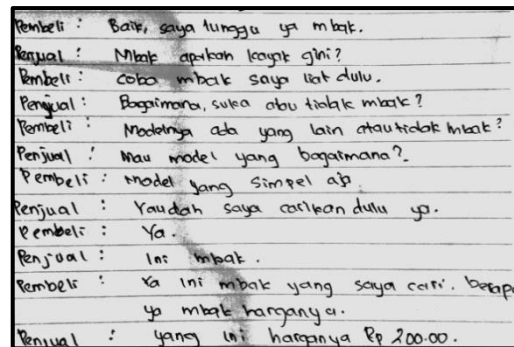 Pembeli : Baik, saya tunggu ya mbak.
Penjual : Mbak apakah kayak gini?
Pembeli : coba mbak saya liat dulu.
Penjual : Bagaimana, suka atau tidak mbak?
Pembeli : Modelnya ada yang lain atau tidak mbak?
Penjual : Mau model yang bagaimana?
Pembeli : Model yang simpel aja
Penjual : Yaudah saya carikan dulu ya.
Pembeli : Ya.
Penjual : Ini mbak.
Pembeli : Ya ini mbak yang saya cari. berapa
ya mbak harganya.
Penjual : yang ini harganya Rp 200.00.